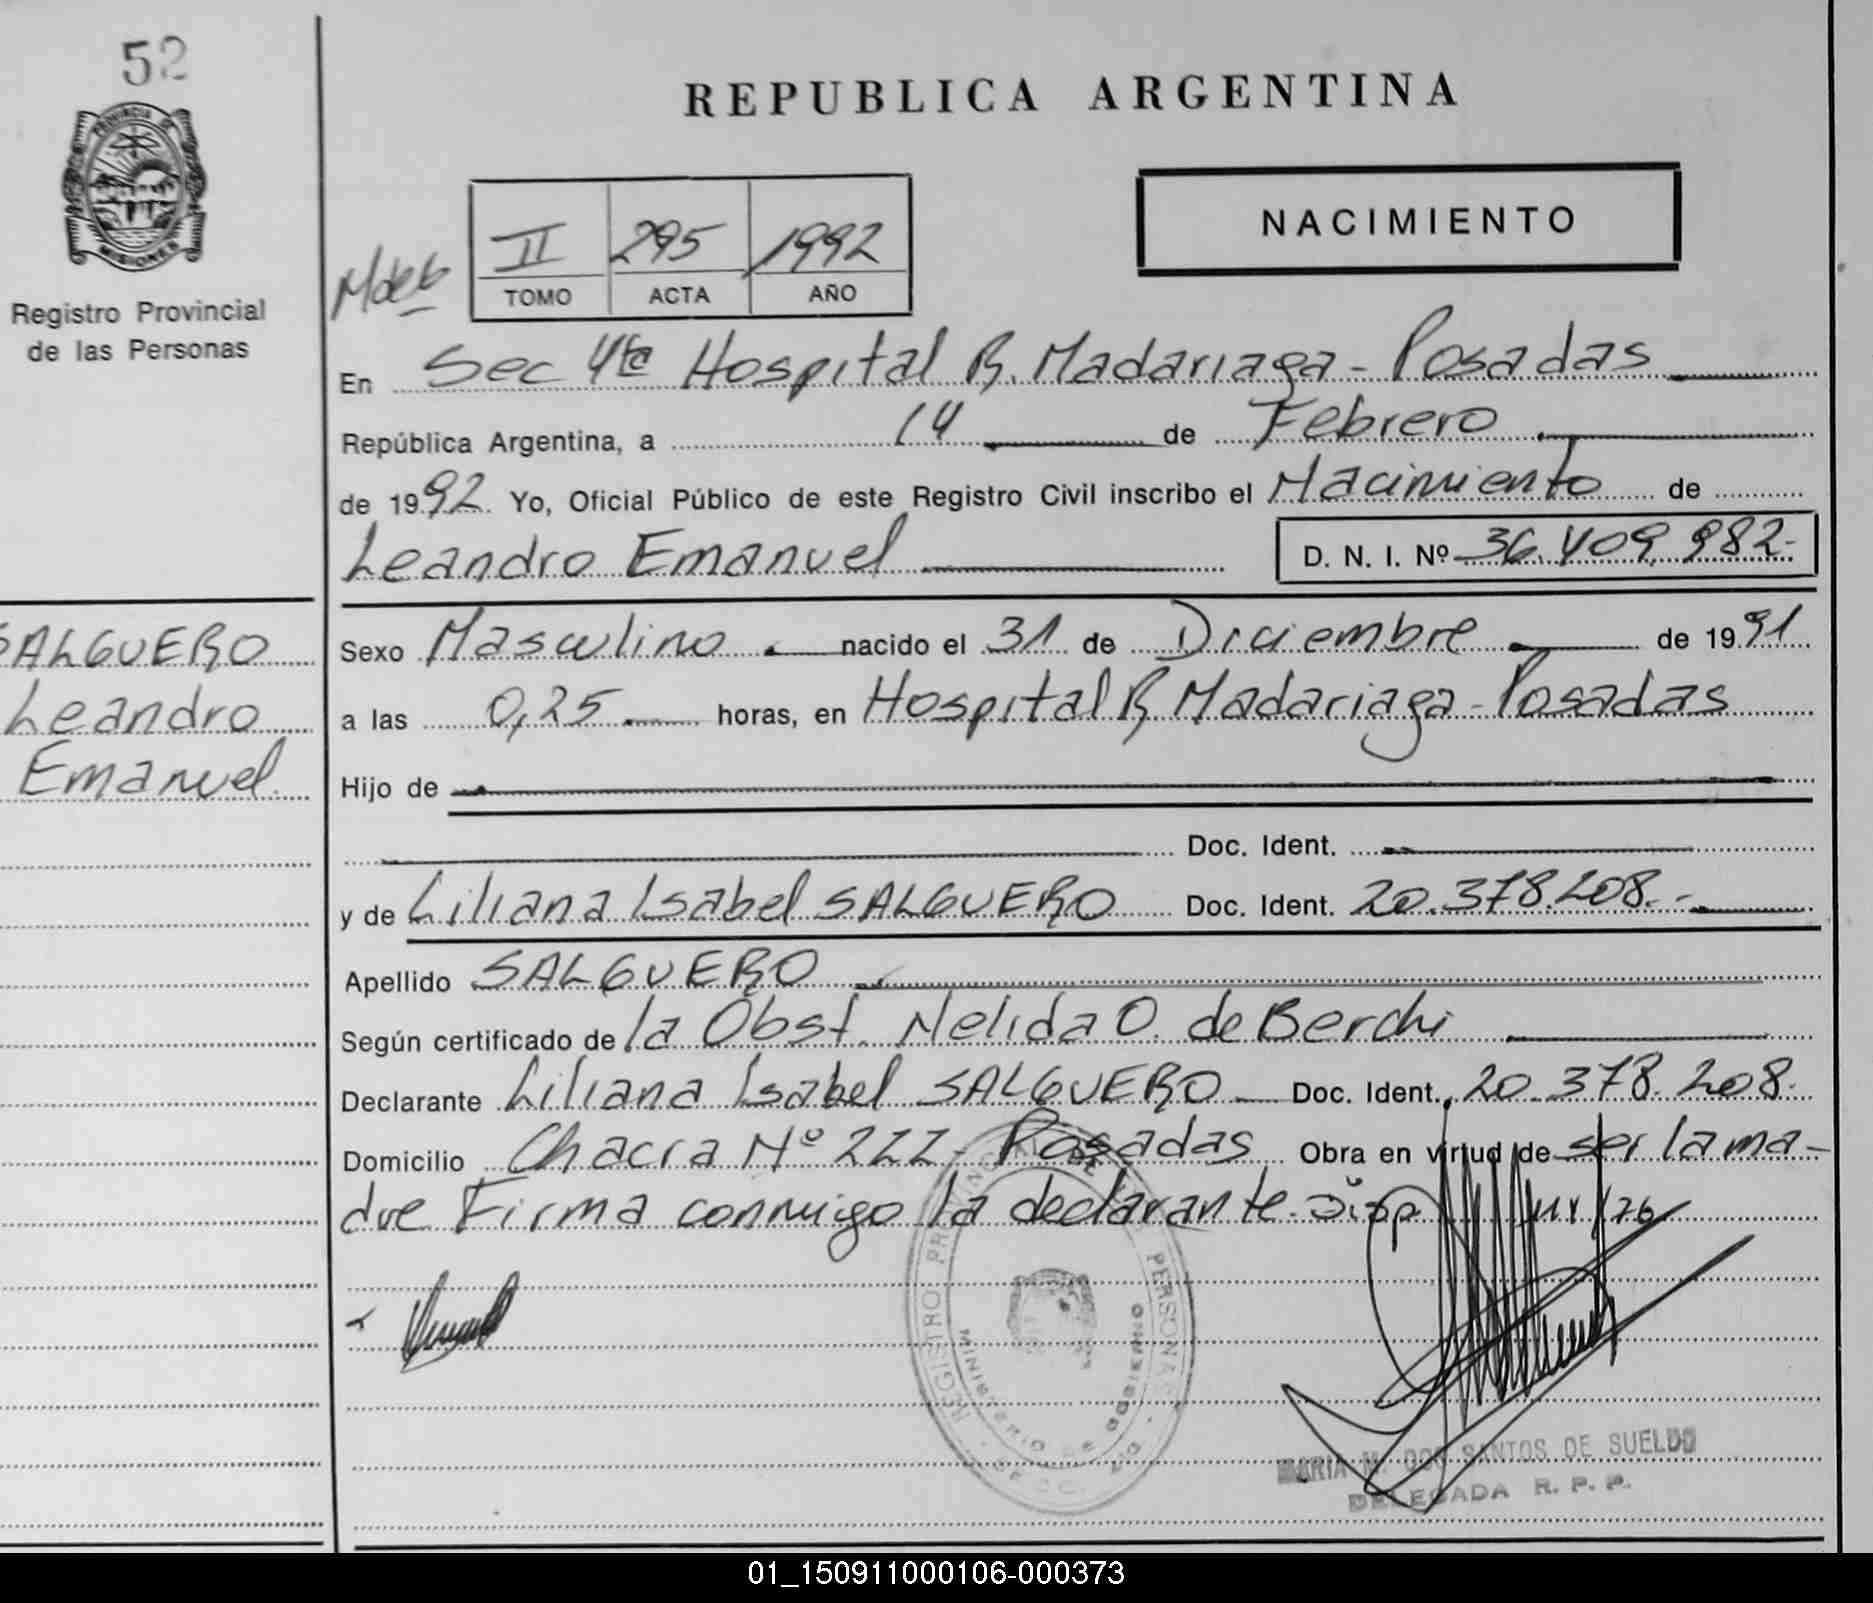 52
PROVINCIA DE
MISIONES
Registro Provincial
de las Personas
SALGUERO
Leandro
Emanuel
REPUBLICA ARGENTINA
II 295 1992
TOMO ACTA AÑO
NACIMIENTO
En Sec 4ta Hospital R. Madariaga - Posadas
República Argentina, a 14 de Febrero
de 1992 Yo, Oficial Público de este Registro Civil inscribo el Nacimiento de
Leandro Emanuel D. N. I. Nº 36.409.982-
Sexo Masculino nacido el 31 de Diciembre de 1991
a las 0,25 horas, en Hospital R Madariaga - Posadas
Hijo de
Doc. Ident.
y de Liliana Isabel SALGUERO Doc. Ident. 20.378.208.-
Apellido SALGUERO
Según certificado de la Obst. Nelida O. de Berchi
Declarante Liliana Isabel SALGUERO Doc. Ident. 20.378.208.
Domicilio Chacra Nº 222 - Posadas Obra en virtud de ser la ma-
dre Firma conmigo la declarante.
REGISTRO PROVINCIAL DE LAS PERSONAS
MINISTERIO DE GOBIERNO
MARIA M. DOS SANTOS DE SUELDO
DELEGADA R. P. P.
01_150911000106-000373